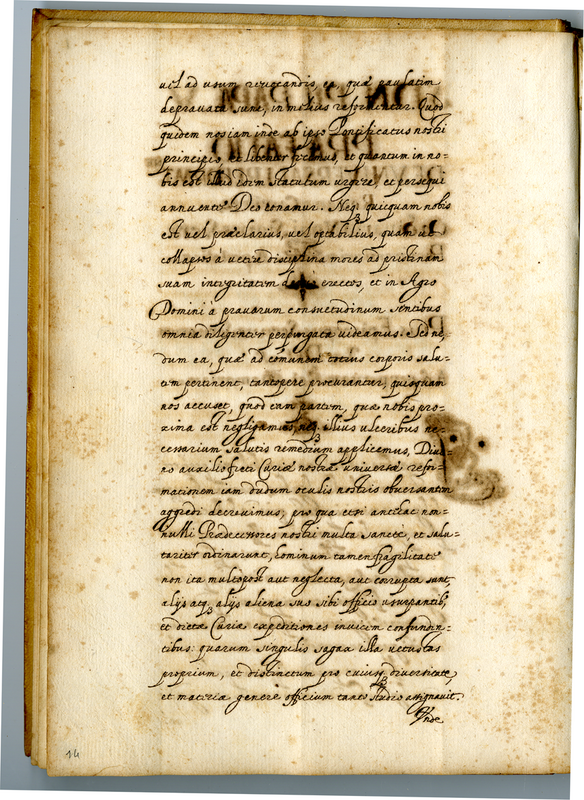 uel ad usum reuocandis, ea, quæ paulatim
deprauata sunt, in melius reformentur. Quod
quidem nos iam inde ab ipso Pontificatus nostri
principio, et libenter fecimus, et quantum in no=
bis est illud idem statutum urgere, et persequi
annuente Deo conamur. Neq; quicquam nobis
est uel præclarius, uel optabilius, quam ut
collapsos à uetere disciplina mores ad pristinam
suam integritatem erectos, et in Agro
Domini à prauarum consuetudinum sentibus
omnia diligenter perpurgata uideamus. Sed ne,
dum ea, quæ ad comunem totius corporis salu=
tem pertinent, tantopere procurantur, quisquam
nos accuset, quod eam partem, quæ nobis pro=
xima est negligamus, neq; illius ulceribus ne=
cessarium salutis remedium applicemus, Diui=
no auxilio freti Curiæ nostræ uniuersæ refor=
mationem iam dudum oculis nostris obuersantem
aggredi decreuimus; pro qua etsi antehac non=
nulli Prædecessores nostri multa sanctè, et salu=
tariter ordinarunt, hominum tamen fragilitate
non ita multopost aut neglecta, aut corrupta sunt,
alijs atq; alijs aliena suo sibi officio usurpantib;
et dictæ Curiæ expeditiones inuicem confunden=
tibus: quarum singulis sagax illa uetustas
proprium, et distinctum pro cuiusq; diuersitate,
et materiæ genere officium tanto studio assignauit.
Unde
14